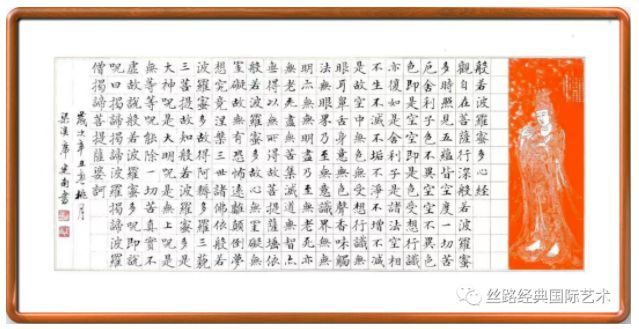 般若波羅蜜多心經
觀自在菩薩行深般若波羅蜜
多時照見五蘊皆空度一切苦
厄舍利子色不異空空不異色
色即是空空即是色受想行識
亦復如是舍利子是諸法空相
不生不滅不垢不淨不增不減
是故空中無色無受想行識無
眼耳鼻舌身意無色聲香味觸
法無眼界乃至無意識界無無
明亦無無明盡乃至無老死亦
無老死盡無苦集滅道無智亦
無得以無所得故菩提薩埵依
般若波羅蜜多故心無罣礙無
罣礙故無有恐怖遠離顛倒夢
想究竟涅槃三世諸佛依般若
波羅蜜多故得阿耨多羅三藐
三菩提故知般若波羅蜜多是
大神呪是大明呪是無上呪是
無等等呪能除一切苦真實不
虛故說般若波羅蜜多呪即說
呪曰揭諦揭諦波羅揭諦波羅
僧揭諦菩提薩婆訶
歲次辛丑桃月
梁溪席南書
丝路经典国际艺术